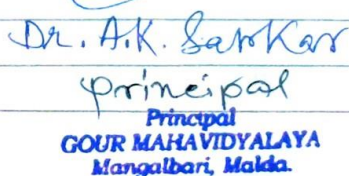 Dr. A.K. Sarkar
Principal
Principal
GOUR MAHAVIDYALAYA
Mangalbari, Malda.